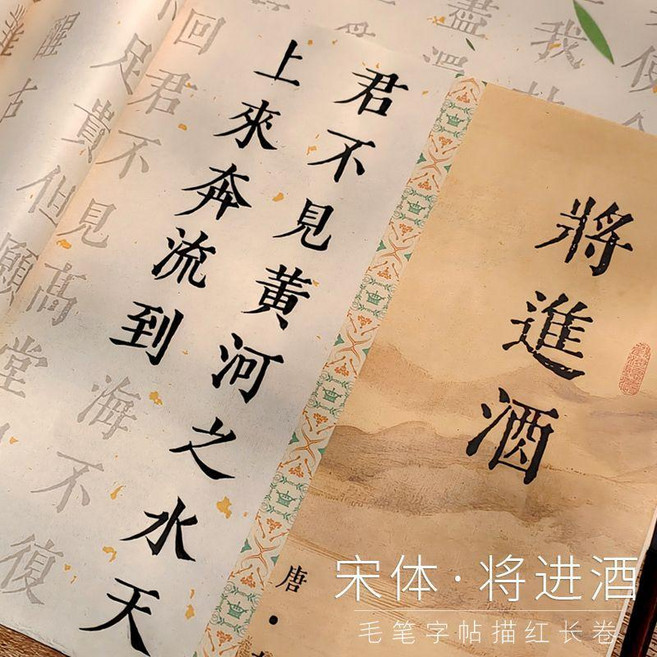 將進酒
唐•
君不見黄河之水天
上來奔流到海不復
回君不見高堂
足貴但願
醒
宋体·将进酒
毛笔字帖描红长卷